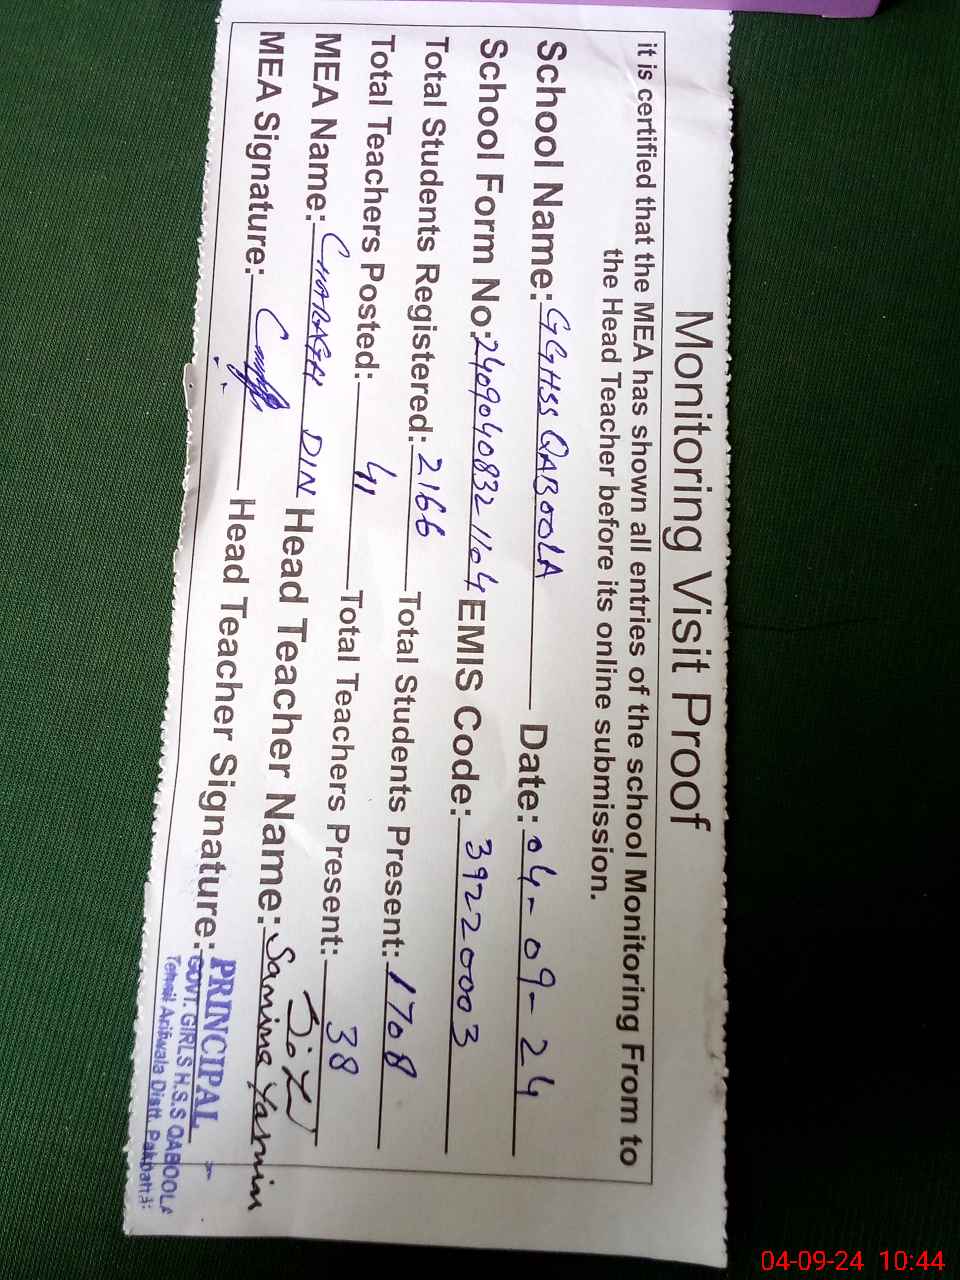 Monitoring Visit Proof
it is certified that the MEA has shown all entries of the school Monitoring From to
the Head Teacher before its online submission.
School Name: GGHSS QABOOLA Date: 04-09-24
School Form No: 24090408321104 EMIS Code: 39220003
Total Students Registered: 2166 Total Students Present: 1708
Total Teachers Posted: 41 Total Teachers Present: 38
MEA Name: CHARAGH DIN Head Teacher Name: Samina Yasmin
MEA Signature: Head Teacher Signature:
PRINCIPAL
GOVT. GIRLS H.S.S QABOOLA
Tehsil Arifwala Distt. Pakpattan
04-09-24 10:44